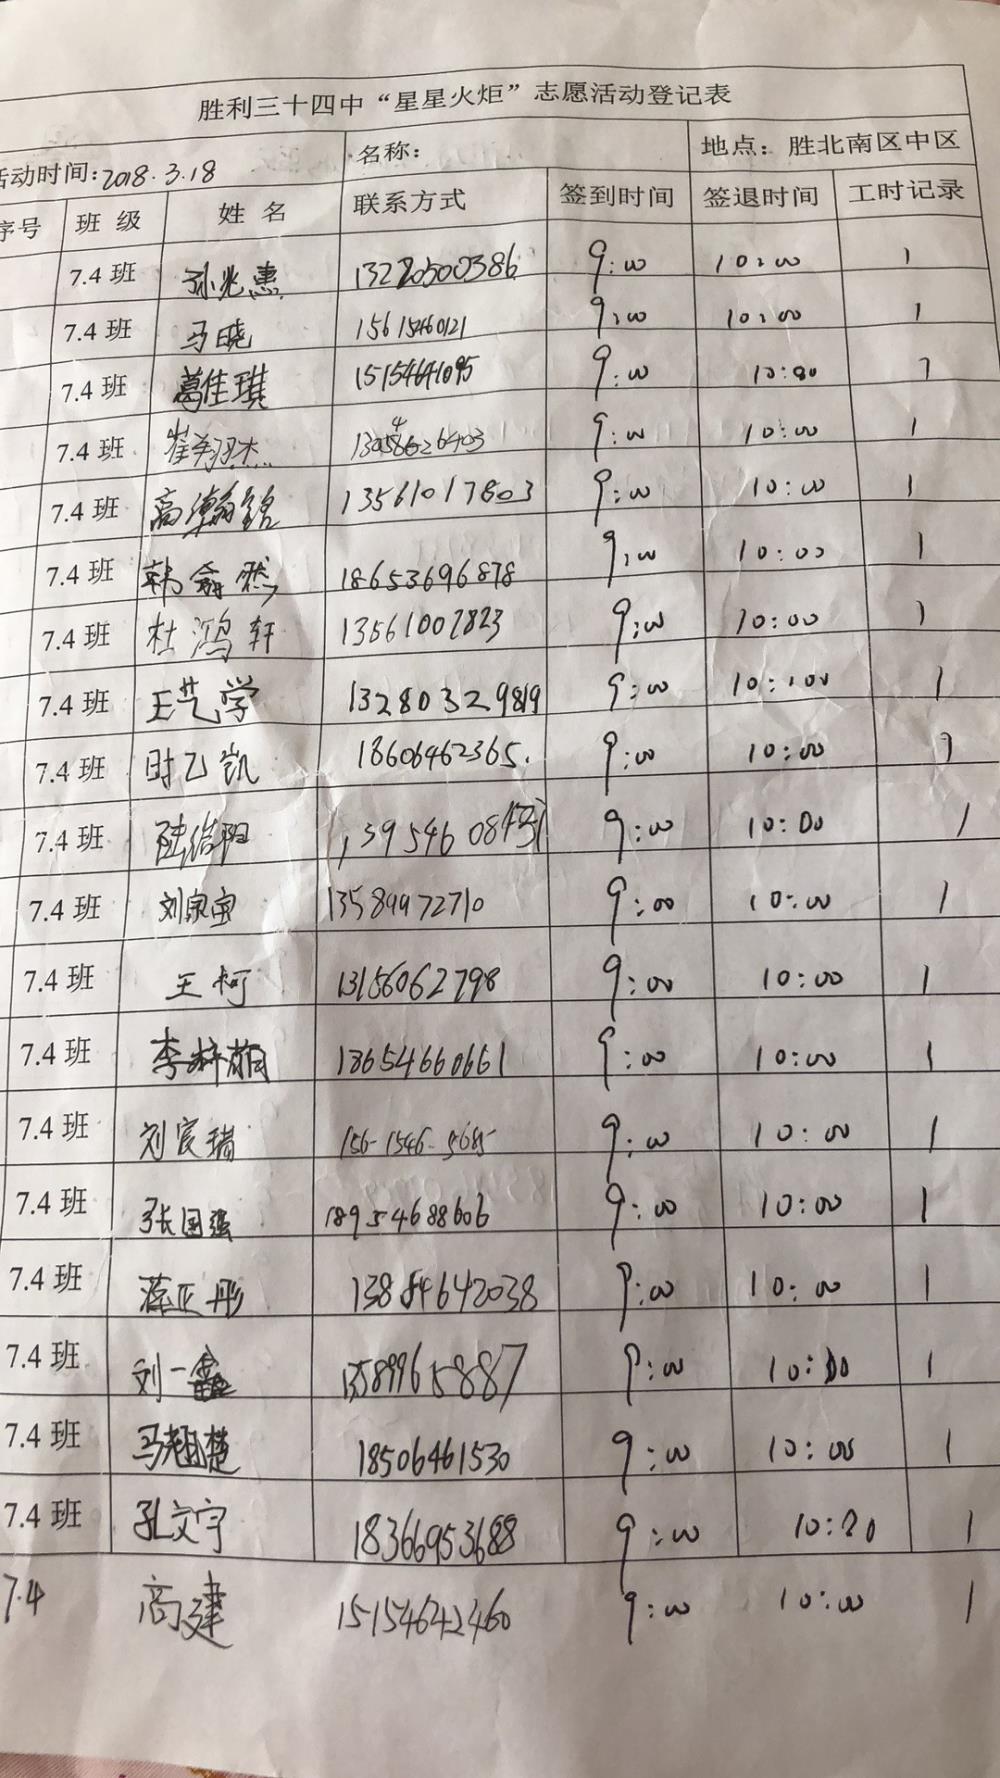 胜利三十四中“星星火炬”志愿活动登记表
活动时间:2018.3.18 名称: 地点:胜北南区中区
序号 班级 姓名 联系方式 签到时间 签退时间 工时记录
7.4班 孙兆惠 13220500386 9:00 10:00 1
7.4班 马晓 15615460121 9:00 10:00 1
7.4班 葛佳琪 15154641095 9:00 10:00 1
7.4班 崔翔杰 9:00 10:00 1
7.4班 高瀚铭 13561017803 9:00 10:00 1
7.4班 韩鑫然 18653696878 9:00 10:00 1
7.4班 杜鸿轩 13561002823 9:00 10:00 1
7.4班 王艺学 13280329819 9:00 10:00 1
7.4班 时乙凯 18606462365. 9:00 10:00 1
7.4班 9:00 10:00 1
7.4班 刘家宜 13589972710 9:00 10:00 1
7.4班 王柯 13156062798 9:00 10:00 1
7.4班 李梓萌 13654660661 9:00 10:00 1
7.4班 刘宸瑞 156-1546-5685 9:00 10:00 1
7.4班 张国强 18954688606 9:00 10:00 1
7.4班 13854642038 9:00 10:00 1
7.4班 刘一鑫 13589965887 9:00 10:00 1
7.4班 马翘楚 18506461530 9:00 10:00 1
7.4班 孔文宇 18366953688 9:00 10:00 1
7.4 高建 15154642460 9:00 10:00 1